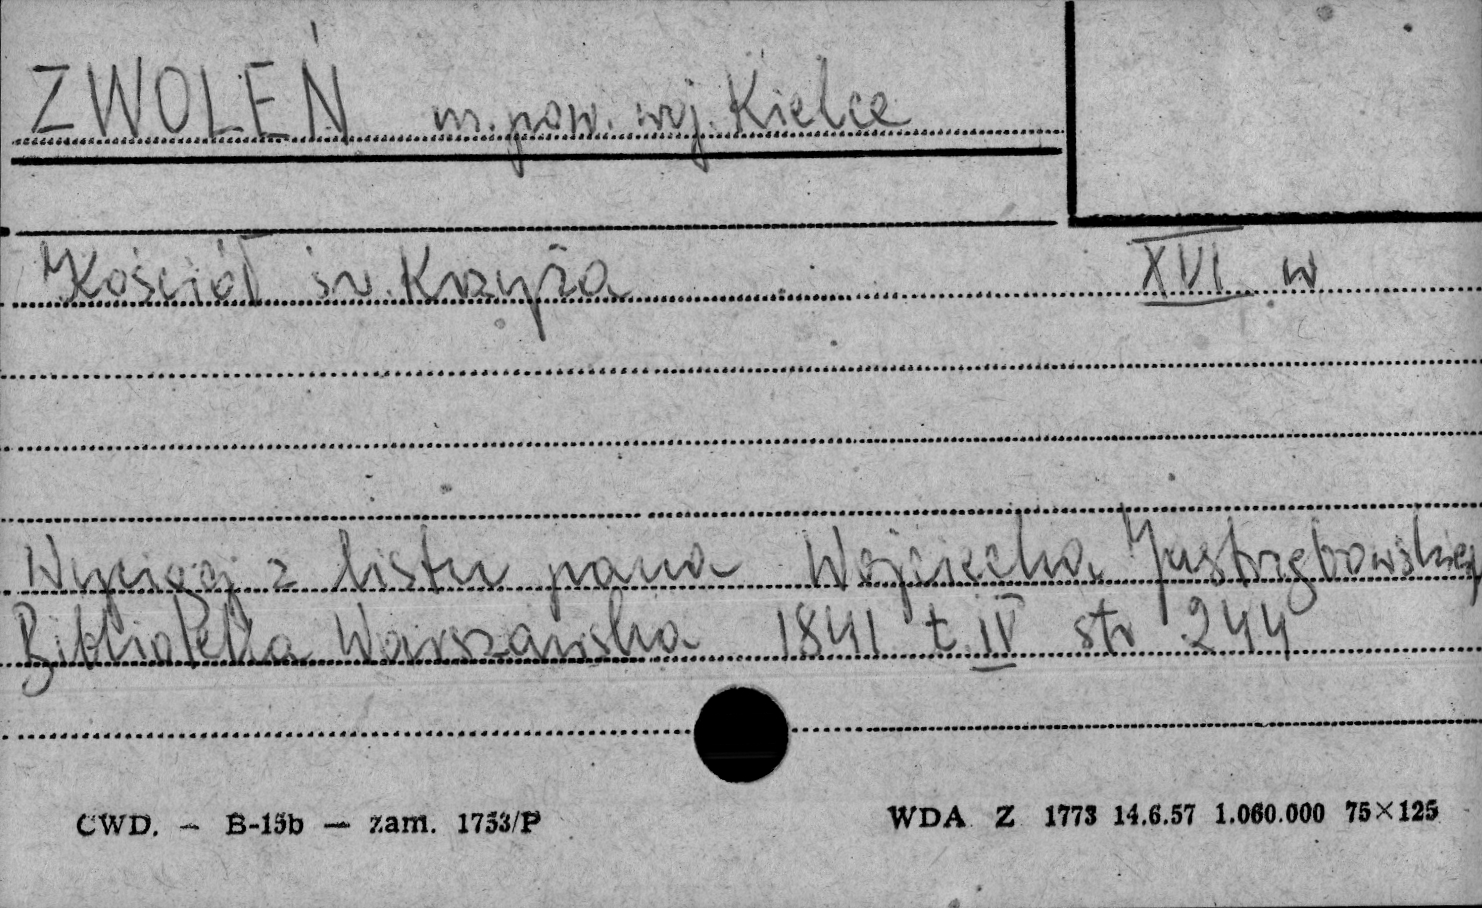 ZWOLEŃ m. pow. woj. Kielce
Kościół św. Krzyża XVI w
Wyciąg z listu pana Wojciecha Jastrzębowskieg
Biblioteka Warszawska 1841 t. IV str 244
CWD. — B-15b — zam. 1753/P WDA Z 1773 14.6.57 1.060.000 75×125